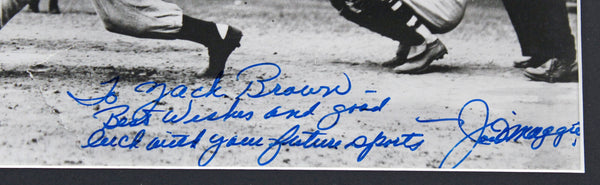 To Zack Brown -
Best Wishes and good
luck with your future sports - Joe DiMaggio